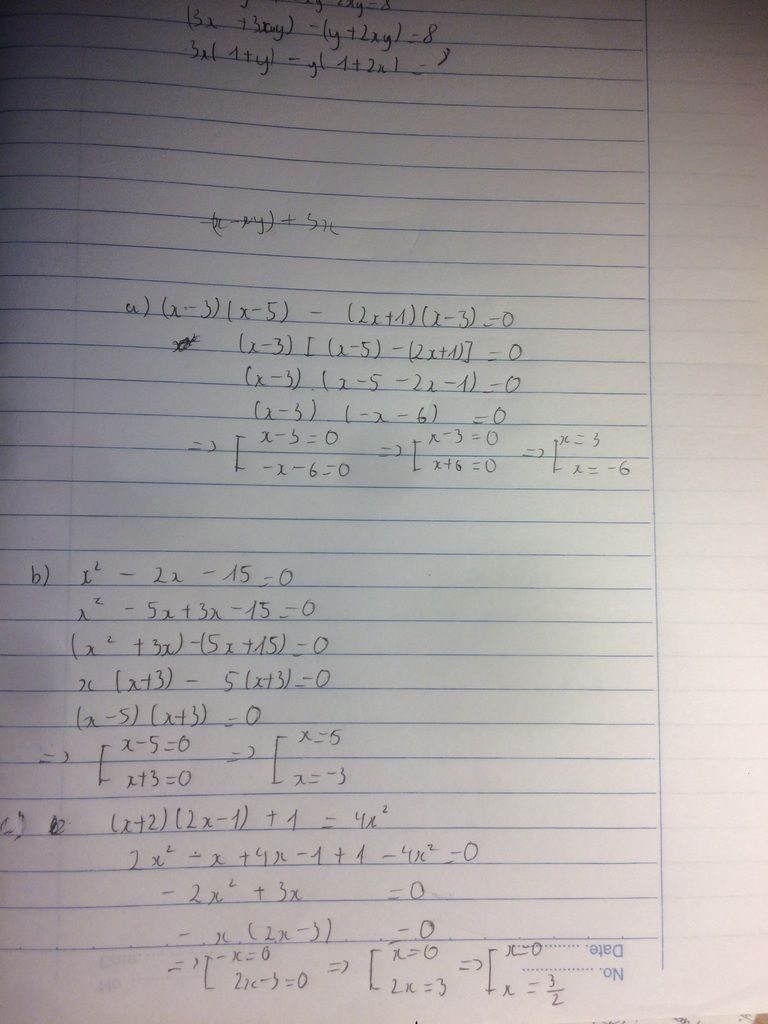 2xy=8
(3x +3xy) -(y+2xy)=8
3x(1+y) - y(1+2x) = 8
(x-xy) + 3x
a) (x-3)(x-5) - (2x+1)(x-3)=0
(x-3)[(x-5)-(2x+1)] =0
(x-3).(x-5-2x-1)=0
(x-3) (-x-6) =0
=> [ x-3=0 => [ x-3=0 => [ x=3
-x-6=0 x+6=0 x=-6
b) x² - 2x -15=0
x² -5x+3x-15=0
(x² +3x)-(5x+15)=0
x (x+3) - 5(x+3)=0
(x-5)(x+3) =0
=> [ x-5=0 => [ x=5
x+3=0 x=-3
c) (x+2)(2x-1)+1 = 4x²
2x² - x+4x-1+1-4x²=0
-2x² +3x =0
- x (2x-3) =0
Date
=> [ -x=0 => [ x=0 => [ x=0
No.
2x-3=0 2x=3 x = 3/2